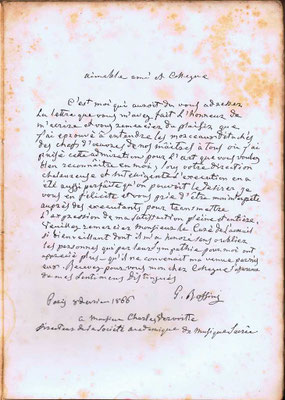 aimable ami et Collegue
C'est moi qui aurait du vous adresser
La Lettre que vous m'avez fait L'honneur de
m'ecrire et vous remercier du plaisir que
j'ai eprouvé a entendre les morceaux detachés
des chefs d'œuvres de nos maitres à tous où j'ai
puisé cette admiration pour L'art que vous voulez
bien reconnaitre en moi; sous votre direction
chaleureuse et intelligente L'execution en a
été aussi parfaite qu'on pouvait le desirer, je
vous en felicite et vous prie d'être mon interprète
auprès des executants pour transmettre
L'expression de ma satisfaction pleine et entière.
Veuillez remercier Monsieur le Curé de l'accueil
si bienveillant dont il m'a honoré sans oublier
les personnes qui par leur sympathie pour moi ont
apprecié plus qu'il ne convenait ma venue parmi
eux. Recevez pour vous mon cher Collegue
de mes sentimens distingués
Paris 1866
G. Rossini
a Monsieur Charles Vervoitte
Directeur de la Societé academique de Musique Sacrée